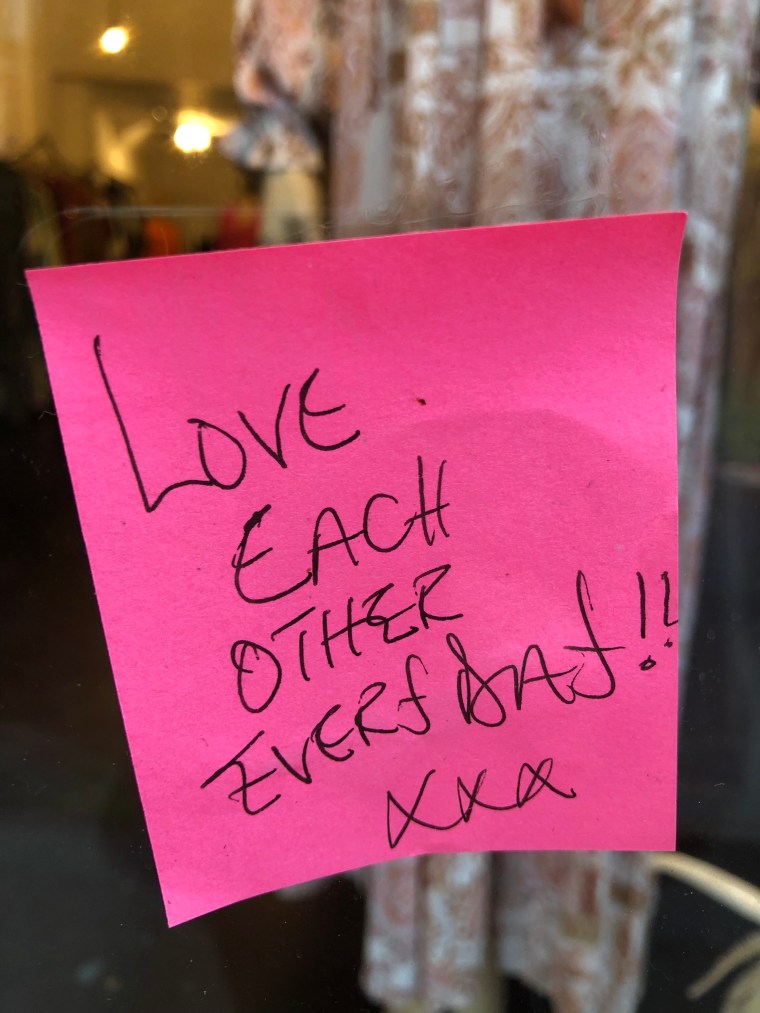 LOVE
EACH
OTHER
EVERY DAY!!
xxx